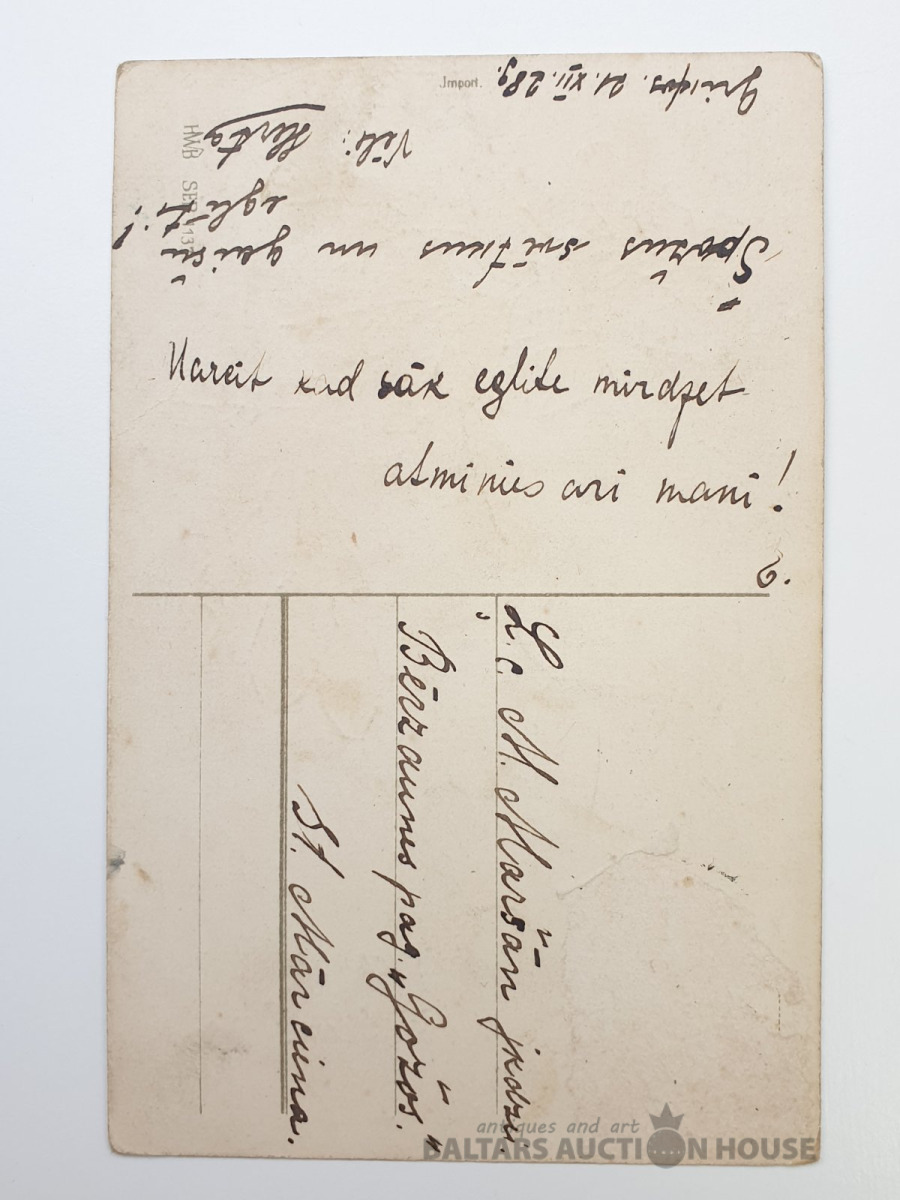 Import.
21.XII.28g.
Spožus svētkus un gaišu
eglīti!
Vēl: Herta
HWB SER 137
Vareit kad sāk eglite mirdzet
atminies ari mani!
L. c. M. Maršān jkdzu.
Bērzaunes pag. „Gožos."
St. Mārciena.
antiques and art
BALTARS AUCTION HOUSE